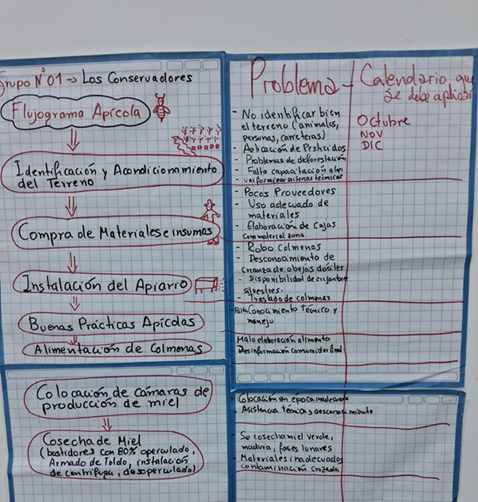 Grupo N° 01 → Los Conservadores
Flujograma Apícola
Identificación y Acondicionamiento
del Terreno
Compra de Materiales e insumas
Instalación del Apiarro
Buenas Prácticas Apícolas
Alimentación de Colmenas
Colocación de cámaras de
producción de miel
Cosecha de Miel
(bastidores con 80% operculado,
Armado de Toldo, instalación
de centrifuga, desoperculado)
Problema
- No identificar bien
el terreno (animales,
personas, carreteras)
- Aplicación de Pesticidas
- Problemas de deforestación
- Falta capacitación
criterios técnicos
- Pocos Proveedores
- Uso adecuado de
materiales
- Elaboración de Cajas
con material zona
- Robo Colmenas
- Desconocimiento de
Crianza de abejas dóciles
- Disponibilidad de enjambres
silvestres.
- Traslado de colmenas
Conocimiento técnico y
manejo
Mala elaboración alimento
Desinformación
Colocación en epoca inadecuada
- Asistencia técnica y desconocimiento
Se cosecha miel verde,
madura, fases lunares
- Materiales inadecuados
contaminación cruzada
Calendario que
se debe aplicar
Octubre
NOV
DIC